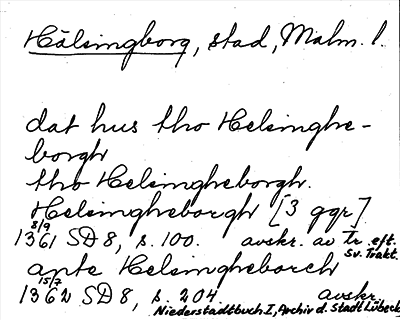 Hälsingborg, stad, Malm. l.
dat hus tho Helsinghe-
borgh
tho Helsingheborgh.
Helsingheborgh [3 ggr]
8/9
1361 SD 8, s. 100. avskr. av Tr. eft.
Sv. Trakt.
apte Helsingheborch
15/7
1362 SD 8, s. 204 avskr.
Niederstadtbuch I, Archiv d. Stadt Lübeck